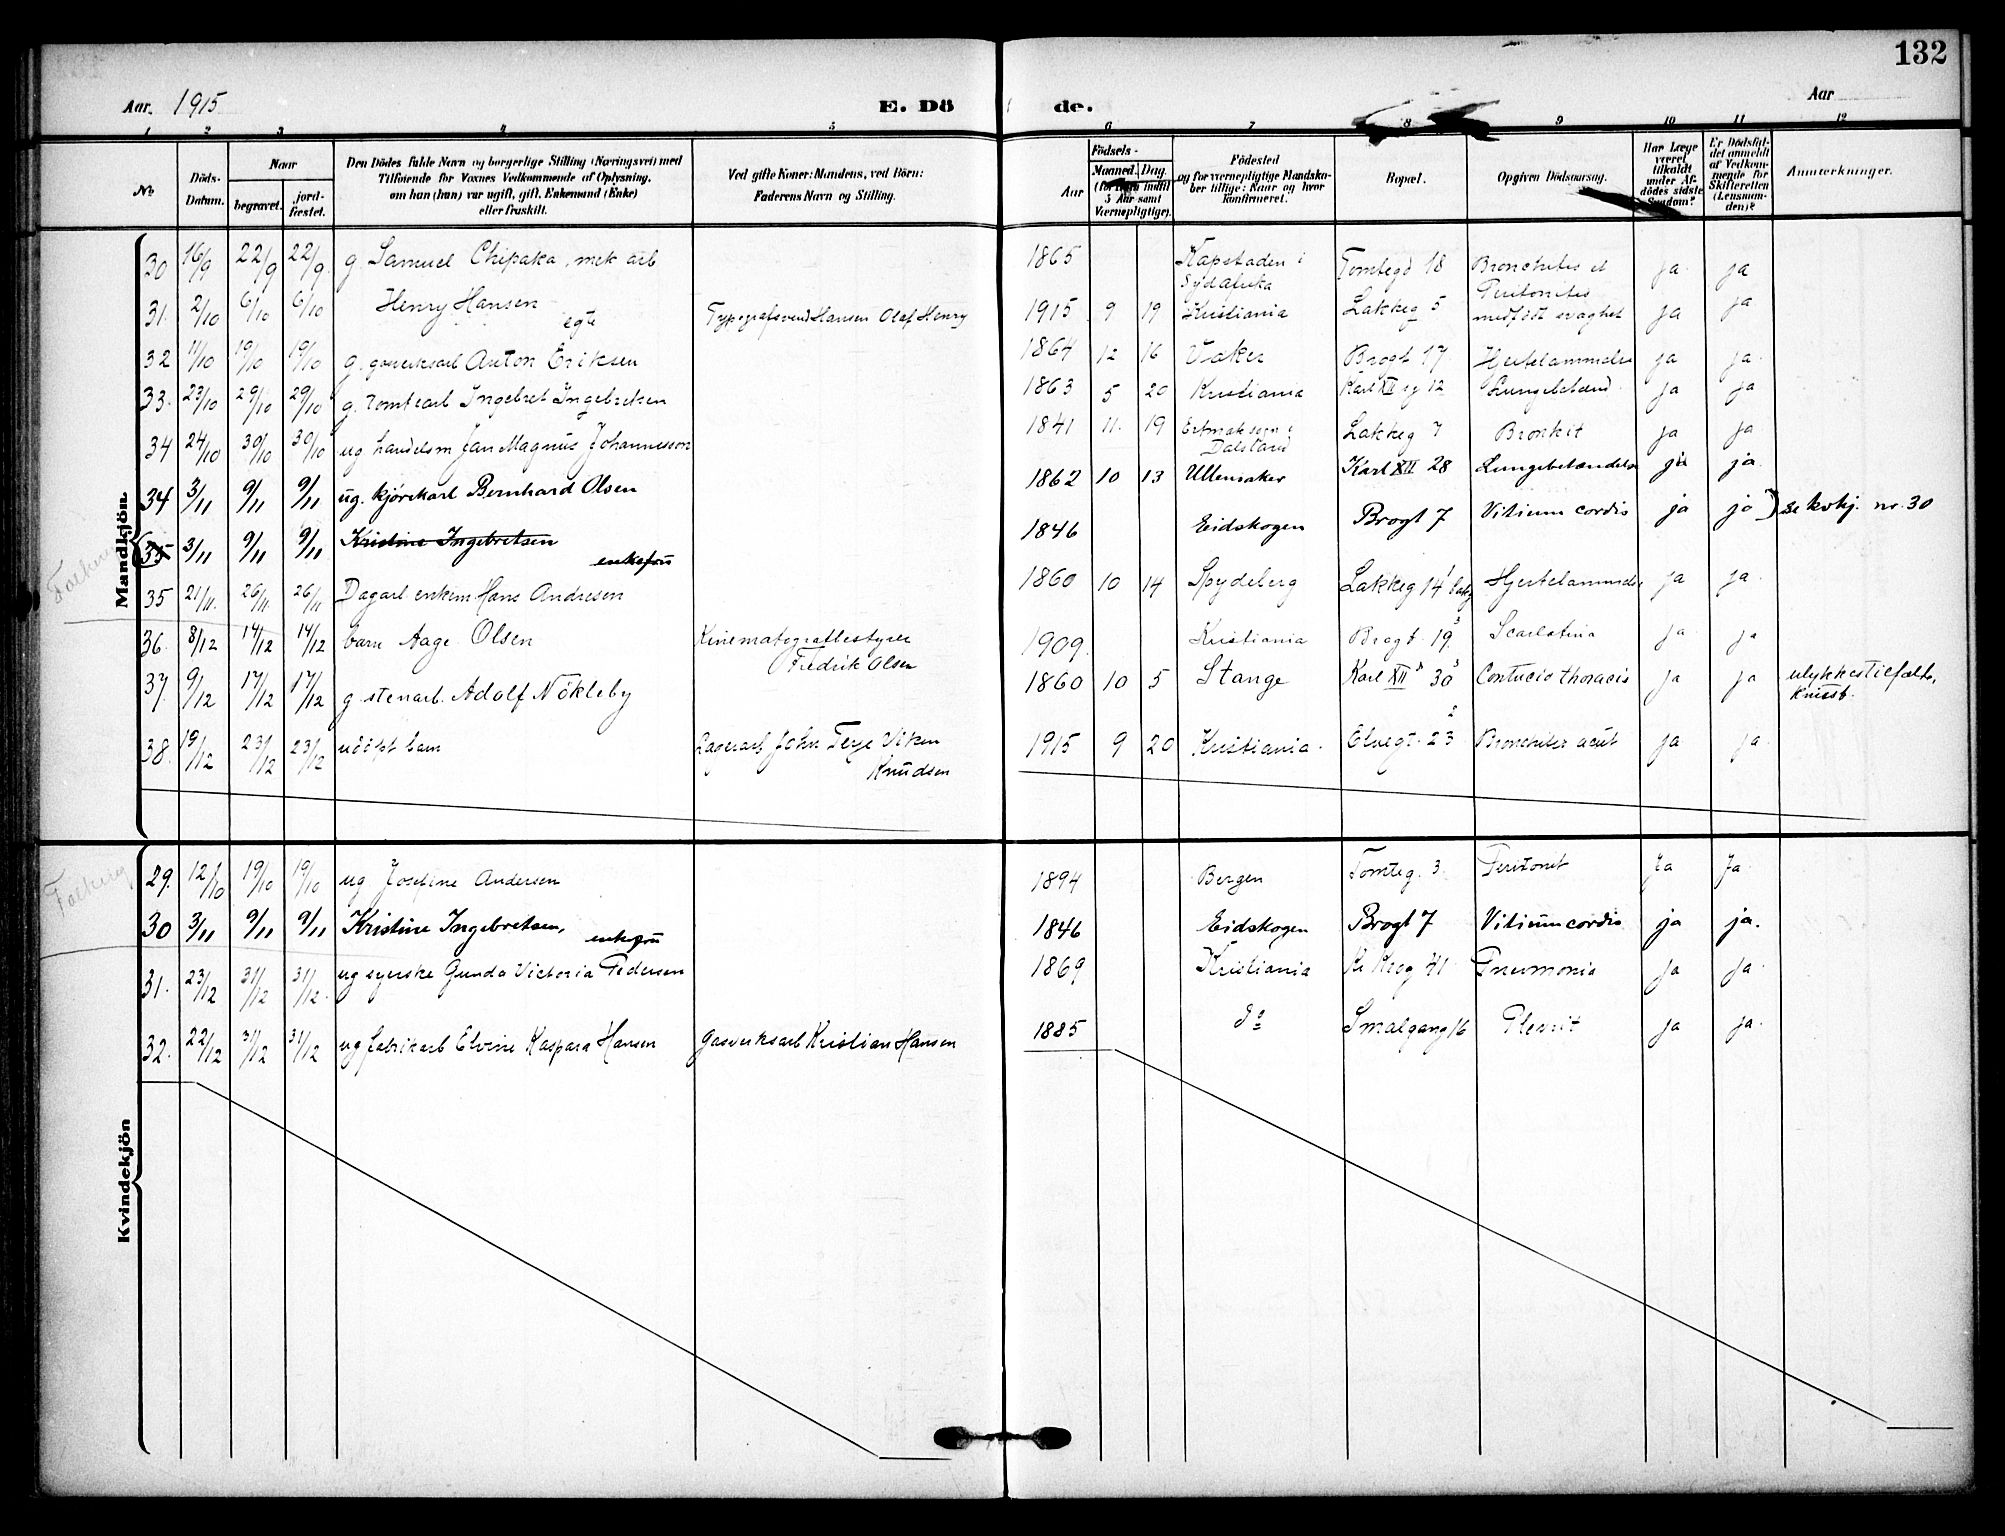 132
Aar 1915 E. Dö de. Aar
1 2 3 4 5 6 7 8 9 10 11 12
No.
Döds-
Datum.
Naar
begravet.
jord-
fæstet.
Den Dödes fulde Navn og borgerlige Stilling (Næringsvei) med
Tilföiende for Voxnes Vedkommende af Oplysning,
om han (hun) var ugift, gift, Enkemand (Enke)
eller fraskilt.
Ved gifte Koner: Mandens, ved Börn:
Faderens Navn og Stilling.
Födsels-
Aar
Maaned.
Dag.
(for Börn indtil
5 Aar samt
Værnepligtige).
Födested
og for værnepligtige Mandska-
ber tillige: Naar og hvor
konfirmeret.
Bopæl.
Opgiven Dödsaarsag.
Har Læge
været
tilkaldt
under Af-
dödes sidste
Sygdom?
Er Dödsfal-
det anmeldt
af Vedkom-
mende for
Skifteretten
(Lensman-
den)?
Anmærkninger.
Mandkjön
30 16/9 22/9 22/9 g. Samuel Chipaka, mek arb 1865 Kapstaden i Sydafrika Tomtegd 18 Bronchites et Peritonites ja ja
31. 2/10 6/10 6/10 Henry Hansen egte Typografsvend Hansen Olaf Henry 1915 9 19 Kristiania Lakkeg 5 medfödt svaghet ja ja
32 11/10 19/10 19/10 g. gasverksarb Anton Eriksen 1864 12 16 Vaker Brogt 17 Hjertelammelse ja ja
33. 23/10 29/10 29/10 g. tomtearb Ingebret Ingebretsen 1863 5 20 Kristiania Karl XII g 12 Lungebetænd. ja ja
34 24/10 30/10 30/10 ug handelsm Jan Magnus Johannesson 1841 11. 19 Dalsland Lakkeg 7 Bronkit ja ja
34 3/11 9/11 9/11 ug. kjörekarl Bernhard Olsen 1862 10 13 Ullensaker Karl XII 28 Lungebetændelse ja ja
35 3/11 9/11 9/11 Kristine Ingebretsen enkefru 1846 Eidskogen Brogt 7 Vitium cordis ja ja se kvkj. nr. 30
35 21/11. 26/11 26/11 Dagarb enkem Hans Andresen 1860 10 14 Spydeberg Lakkeg 14 Hjertelammelse ja ja
36. 8/12 14/12 14/12 barn Aage Olsen Kinematografbestyrer Fredrik Olsen 1909. Kristiania Brogt. 19 3 Scarlatina ja ja
37. 9/12 17/12 17/12 g. stenarb. Adolf Nökleby 1860 10 5 Stange Karl XII s 30 3 Contucio thoracis ja ja ulykkestilfælde, knust.
38. 19/12 23/12 23/12 udöpt barn Lagerarb John Terje Viken Knudsen 1915 9 20 Kristiania. Elvegt. 23 2 Bronchites acut ja ja
Kvindekjön
29. 12/10 19/10 19/10 ug Josefine Andersen 1894 Bergen Tomteg. 3. Peritonit Ja Ja
30 3/11 9/11 9/11 Kristine Ingebretsen, enkefru 1846 Eidskogen Brogt 7 Vitium cordis ja ja.
31. 23/12 31/12 31/12. ug syerske Gunda Victoria Pedersen 1869 Kristiania Kr Krog 41 Pneumonia ja ja
32. 22/12 31/12 31/12 ug fabrikarb Elvine Kaspara Hansen Gasverksarb Kristian Hansen 1885 do Smalgang 16 Plevrit ja ja